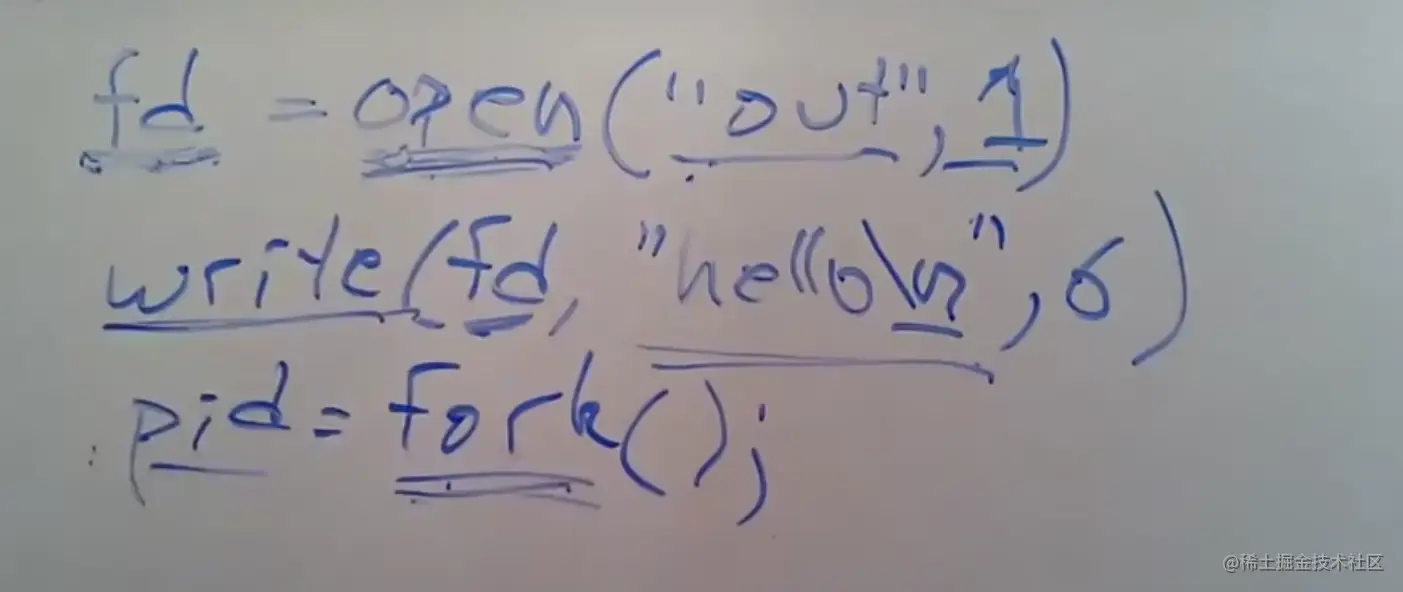 fd = open("out", 1)
write(fd, "hello\n", 6)
pid = fork();
@稀土掘金技术社区